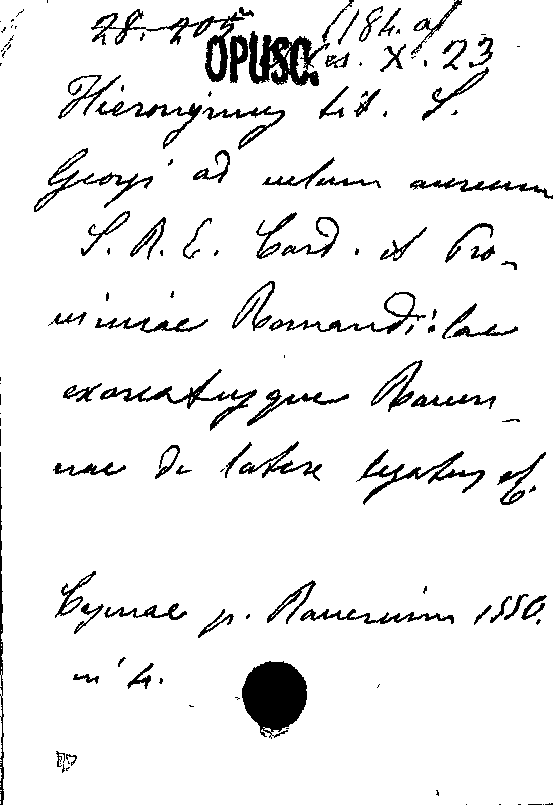 28. 205
184. a/
OPUSC. Ces. X. 23
Hieronymus tit. S.
Georgi ad uelum aureum
S. R. E. Card. et Pro-
uinciae Romandi:lae
exarcatusque Rauen-
nae de latere legatus etc.
p. 1550.
in 4.